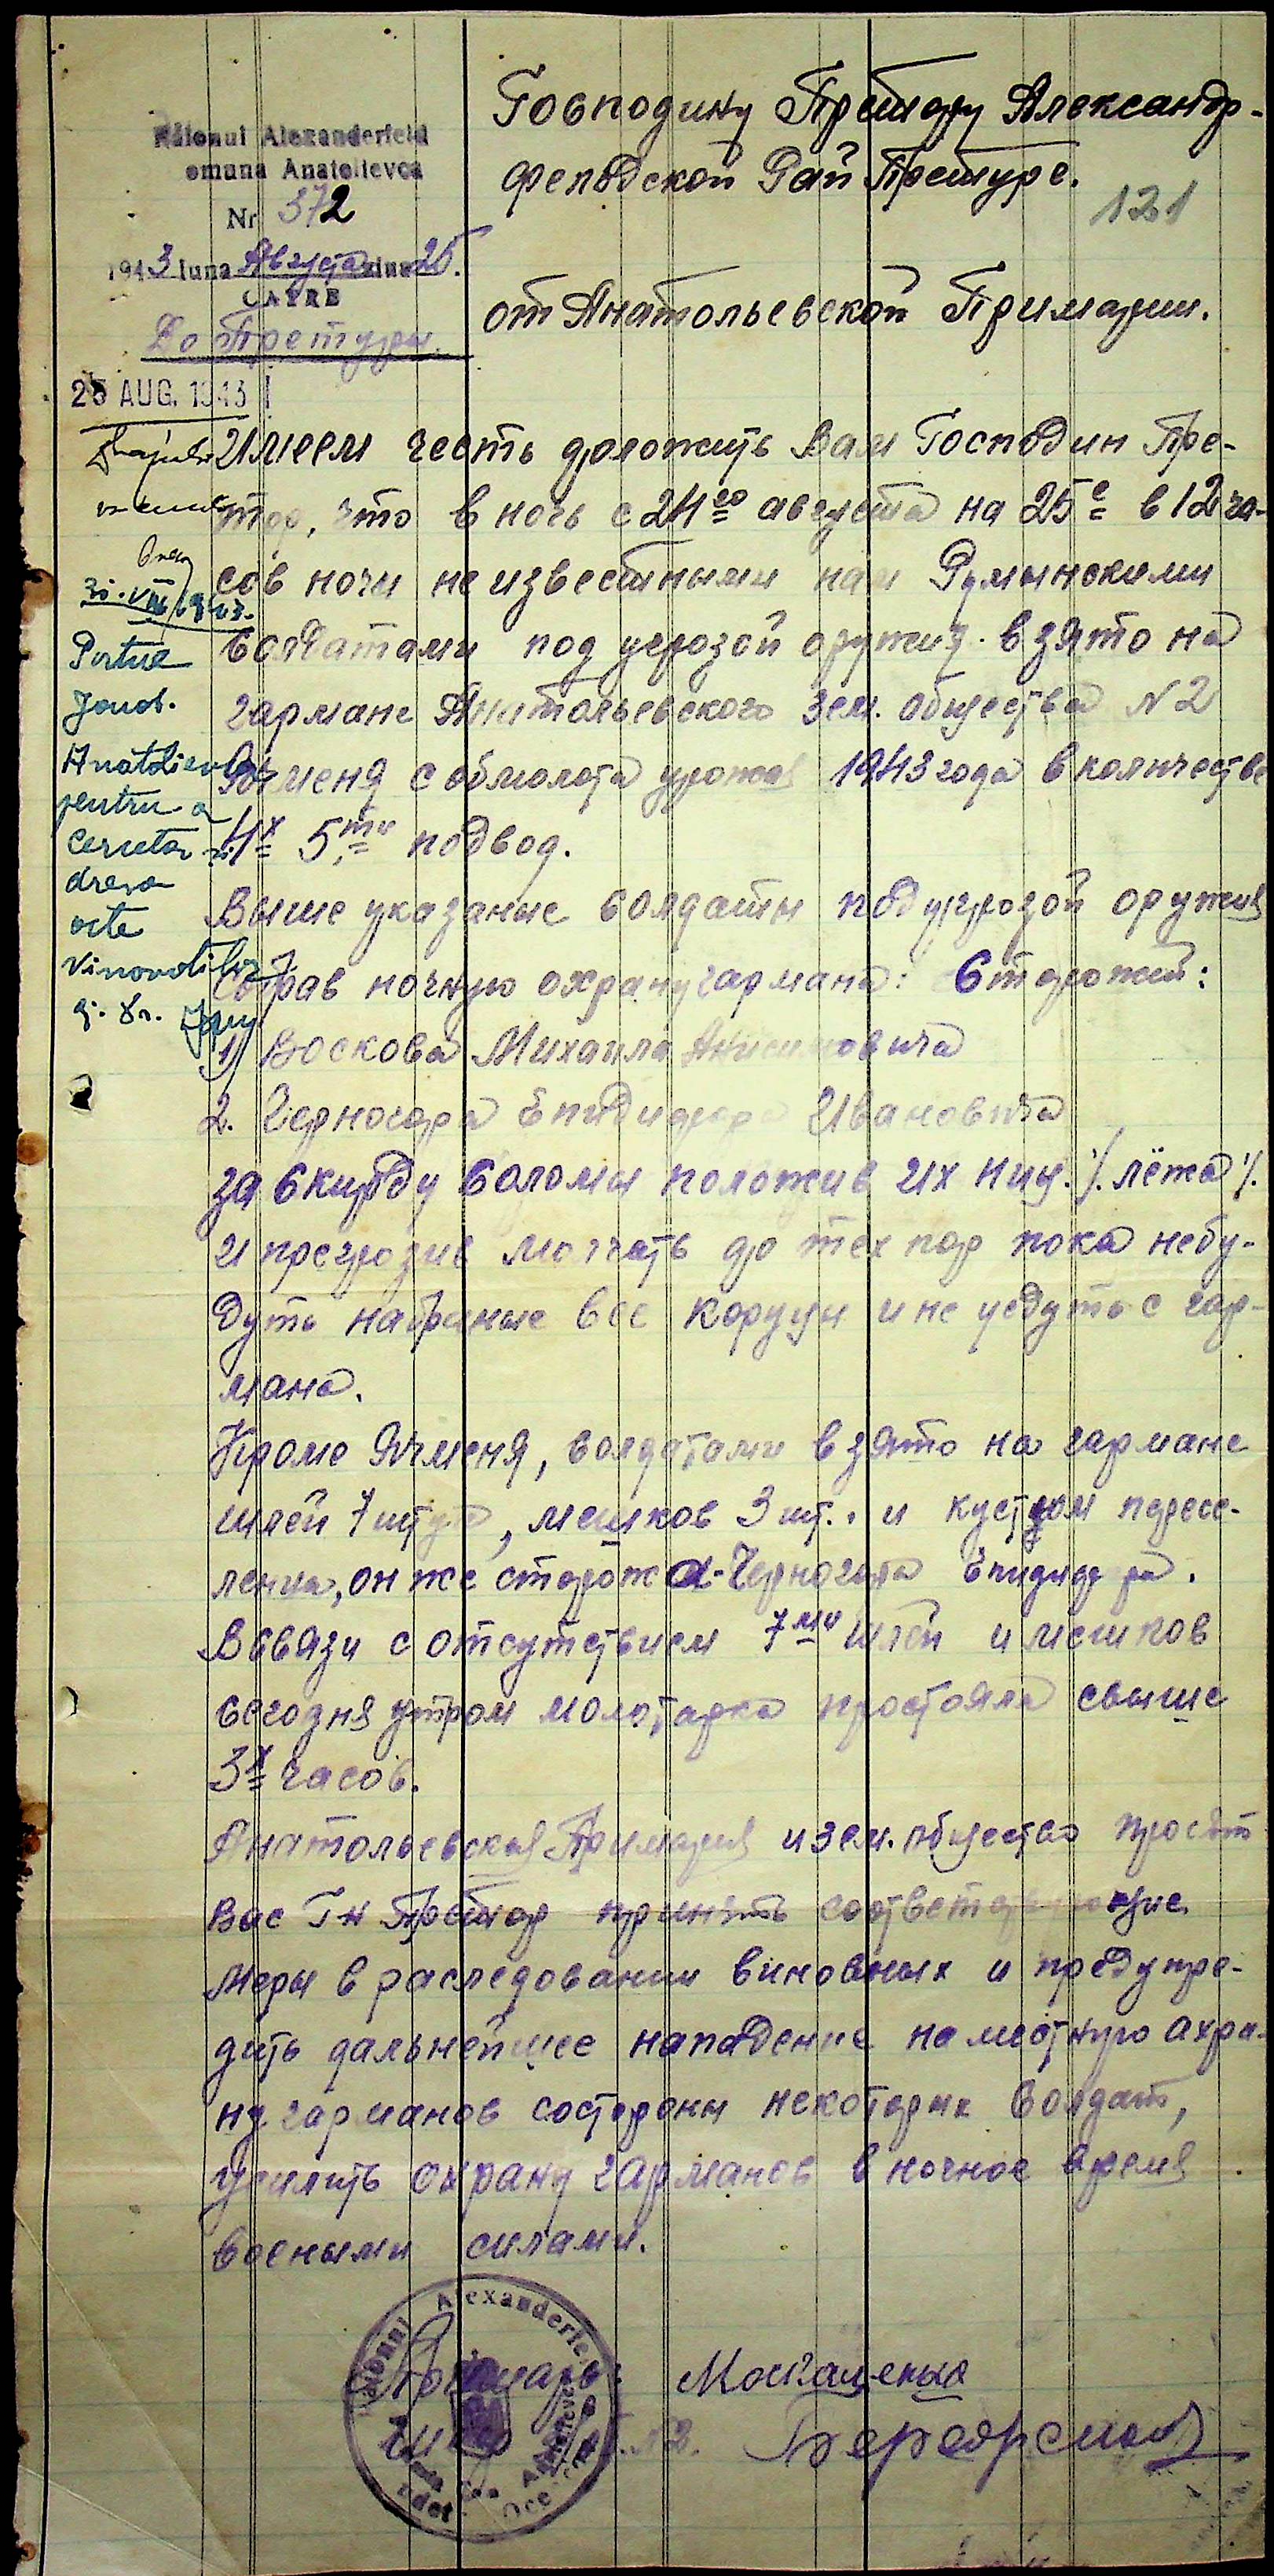 Raionul Alexanderfeld
omuna Anatolievca
Nr 372
1943 luna Августа ziua 25.
CATRE
До Претуры.
25 AUG. 1943
Господину Претору Александр-
фельдской Рай Претуре.
121
от Анатольевской Примарии.
Имеем честь доложить Вам Господин Пре-
тор, что в ночь с 24го августа на 25е в 12 ча-
сов ночи неизвестными нам Румынскими
солдатами под угрозой оружия взято на
гармане Анатольевского Зем. общества N 2
Ячменя с обмолота урожая 1943 года в количестве
4х 5ти подвод.
Выше указаные солдаты под угрозой оружия
Собрав ночную охрану гармана: Сторожей:
1) Воскова Михаила Анисимовича
2. Черногора Епидифора Ивановича
за скирду соломы положив их ниц. ٪. лёжа ٪.
и прегрозив молчать до тех пор пока небу-
дуть набраные все коруцы и не уедуть с гар-
мана.
Кроме Ячменя, солдатами взято на гармане
шлей 7 штук, мешков 3 шт. и кустюм пересе-
ленца, он же сторожа-Черногора Епидифора.
Всвязи с отсутствием 7ми шлей и мешков
сегодня утром молотарка простояла свыше
3х часов.
Анатольевская Примария и зем. общество просят
Вас Гн Претор принять соответствующие
меры в раследовании виновных и предупре-
дить дальнейшее нападение на местную охра-
ну гарманов состороны некоторых солдат,
усилить охрану гарманов в ночное время
военными силами.
Примарь: Москаленко
N2.
31.VIII 1943.
Portue
Jand.
Anatolievca
pentru a
cerceta
drera
acte
vinovatilor